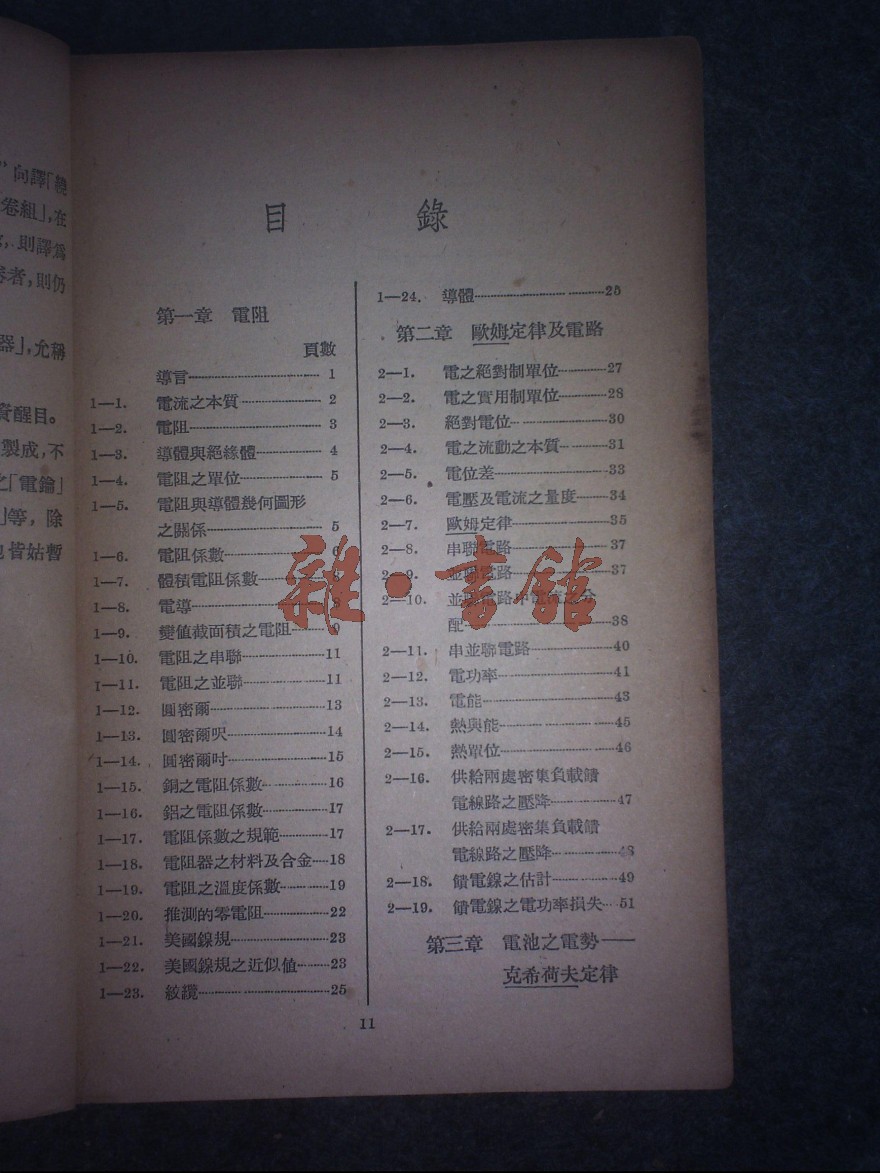 ”向譯「繞
卷組」,在
則譯爲
者,則仍
器」,允稱
醒目。
製成,不
之「電鑰」
」等，除
皆姑暫
目 錄
第一章 電阻
頁數
導言 1
1—1. 電流之本質 2
1—2. 電阻 3
1—3. 導體與絕緣體 4
1—4. 電阻之單位 5
1—5. 電阻與導體幾何圖形
之關係 5
1—6. 電阻係數 6
1—7. 體積電阻係數
1—8. 電導
1—9. 變值截面積之電阻 9
1—10. 電阻之串聯 11
1—11. 電阻之並聯 11
1—12. 圓密爾 13
1—13. 圓密爾呎 14
1—14. 圓密爾吋 15
1—15. 銅之電阻係數 16
1—16. 鋁之電阻係數 17
1—17. 電阻係數之規範 17
1—18. 電阻器之材料及合金 18
1—19. 電阻之溫度係數 19
1—20. 推測的零電阻 22
1—21. 美國線規 23
1—22. 美國線規之近似值 23
1—23. 絞纜 25
1—24. 導體 25
第二章 歐姆定律及電路
2—1. 電之絕對制單位 27
2—2. 電之實用制單位 28
2—3. 絕對電位 30
2—4. 電之流動之本質 31
2—5. 電位差 33
2—6. 電壓及電流之量度 34
2—7. 歐姆定律 35
2—8. 串聯電路 37
2—9. 並聯電路 37
2—10. 並聯電路中電流之分
配 38
2—11. 串並聯電路 40
2—12. 電功率 41
2—13. 電能 43
2—14. 熱與能 45
2—15. 熱單位 46
2—16. 供給兩處密集負載饋
電線路之壓降 47
2—17. 供給兩處密集負載饋
電線路之壓降 48
2—18. 饋電線之估計 49
2—19. 饋電線之電功率損失 51
第三章 電池之電勢——
克希荷夫定律
11
雜·書館